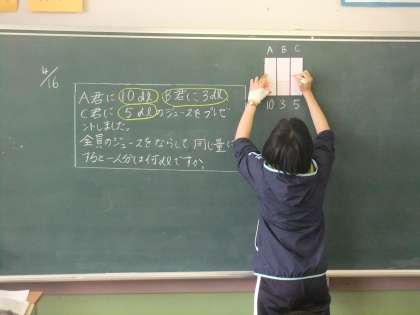 4/16
A君に10dl B君に3dl
C君に5dlのジュースをプレゼ
ントしました。
全員のジュースをならして同じ量に
すると一人分は何dlですか。
A B C
10 3 5